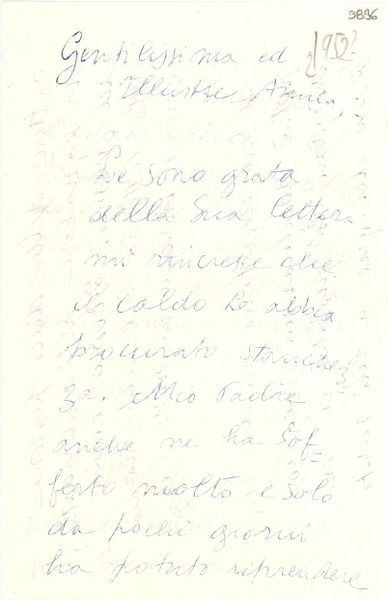 9896
1952?
Gentilissima ed
Illustre Amica,
Le sono grata
della Sua lettera
mi rincresce che
il caldo Le abbia
procurato stanchez-
za. Mio Padre
anche ne ha sof-
ferto molto e solo
da pochi giorni
ha potuto riprendere